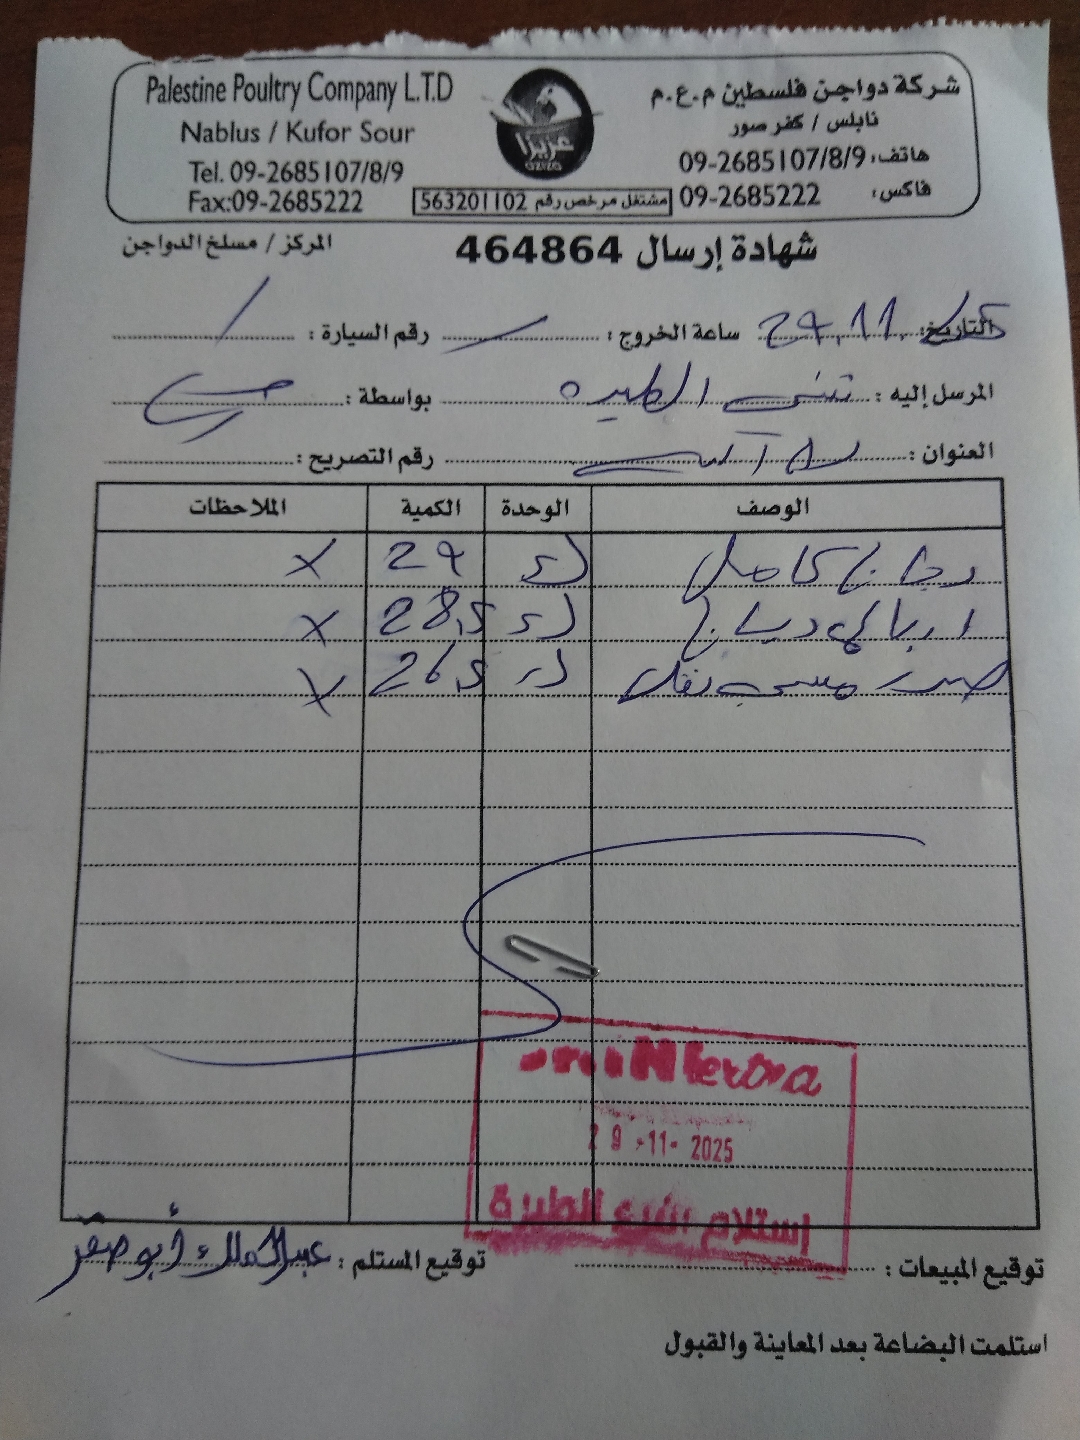 Palestine Poultry Company L.T.D
Nablus / Kufor Sour
Tel. 09-2685107/8/9
Fax:09-2685222
عزيزا
شركة دواجن فلسطين م.ع.م
نابلس / كفر صور
هاتف: 09-2685107/8/9
فاكس: 09-2685222
مشتغل مرخص رقم 563201102
شهادة إرسال 464864
المركز / مسلخ الدواجن
التاريخ: 29.11.25 ساعة الخروج: رقم السيارة:
المرسل إليه: الطيره بواسطة:
العنوان: رقم التصريح:
الوصف الوحدة الكمية الملاحظات
دجاج كامل 29 X
دجاج 28,5 X
صدر 26,5 X
29-11-2025
إستلام الفرع الطيرة
توقيع المبيعات: توقيع المستلم: عبد الملك أبو صقر
استلمت البضاعة بعد المعاينة والقبول